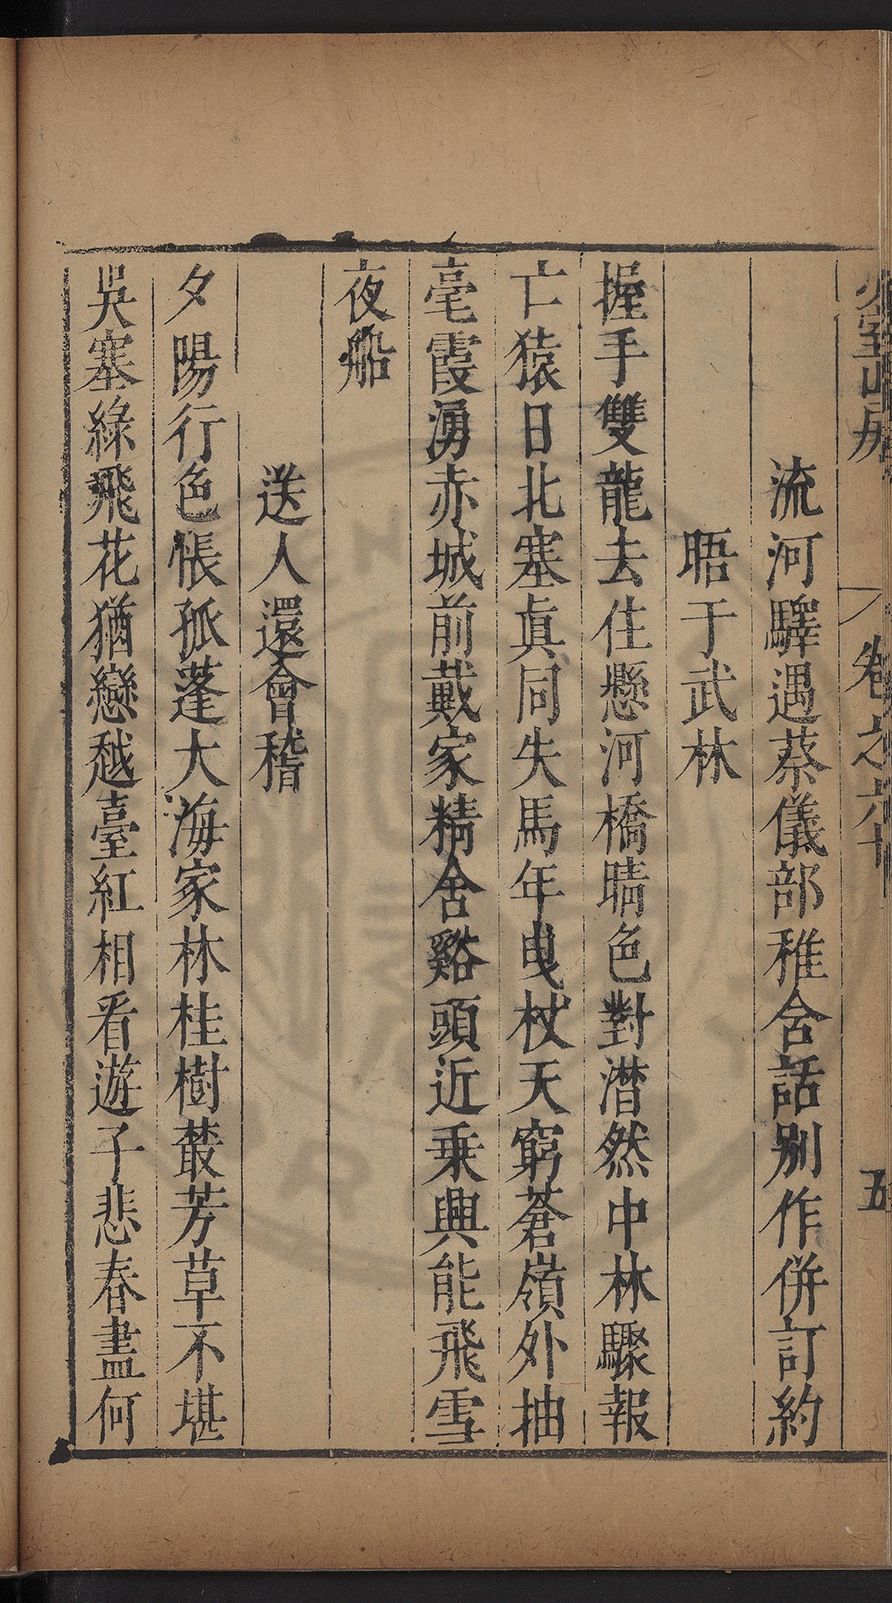 流河驛遇蔡儀部稚含話別作併訂約
晤于武林
握手雙龍去住懸河橋晴色對潸然中林驟報
亡猿日北塞眞同失馬年曳杖天窮蒼嶺外抽
毫霞湧赤城前戴家精舍谿頭近乗興能飛雪
夜船
送人還會稽
夕陽行色悵孤蓬大海家林桂樹叢芳草不堪
吳塞綠飛花猶戀越臺紅相看遊子悲春盡何
少室山房
卷之六十
五